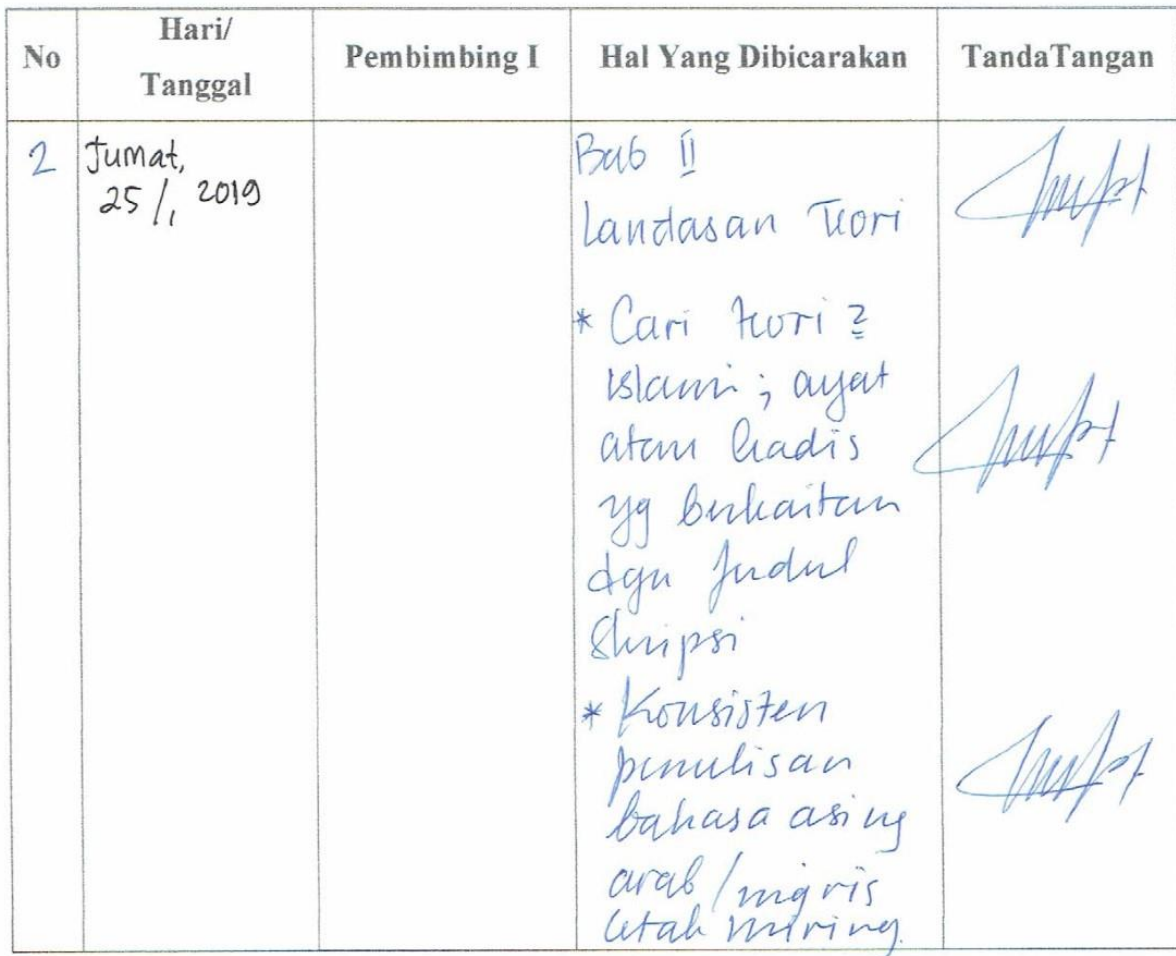 No Hari/ Pembimbing I Hal Yang Dibicarakan TandaTangan
Tanggal
2 Jumat,
25/1 2019
Bab II
Landasan Teori
* Cari teori 2
islami ; ayat
atau hadis
yg berkaitan
dgn Judul
Skripsi
* Konsisten
penulisan
bahasa asing
arab / inggris
cetak miring.